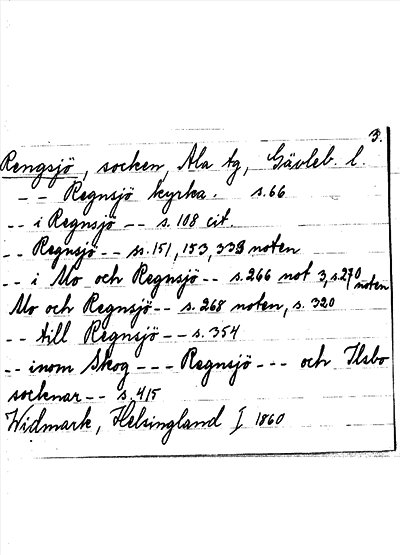 3.
Rengsjö, socken, Ala tg, Gävleb. l.
-- Regnsjö kyrka. s.66
-- i Regnsjö -- s. 108 cit.
-- Regnsjö -- ss. 151, 153, 333 noten
-- i Mo och Regnsjö -- s.266 not 3, s.270 noten
Mo och Regnsjö -- s. 268 noten, s. 320
-- till Regnsjö -- s. 354
-- inom Skog --- Regnsjö --- och Ilsbo
socknar -- s. 415
Widmark, Helsingland I 1860